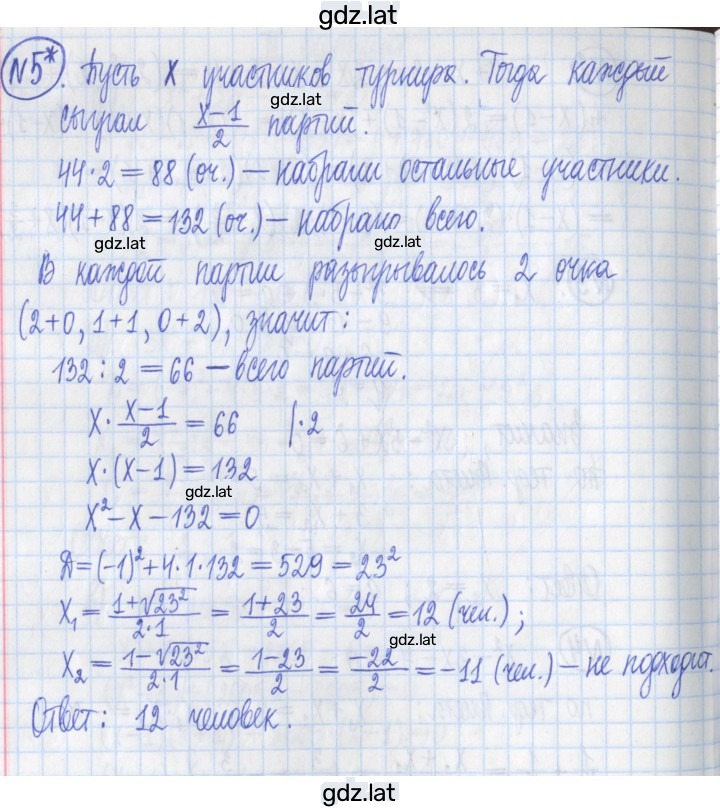 gdz.lat
N5*. Пусть x участников турнира. Тогда каждый
gdz.lat
сыграл (x-1)/2 партий.
44·2=88 (оч.) — набрали остальные участники.
44+88=132 (оч.) — набрано всего.
gdz.lat gdz.lat
В каждой партии разыгрывалось 2 очка
(2+0, 1+1, 0+2), значит:
gdz.lat
132:2=66 — всего партий.
x·(x-1)/2=66 |·2
x·(x-1)=132
gdz.lat
x²-x-132=0
Д=(-1)²+4·1·132=529=23²
x₁=(1+√23²)/(2·1)=(1+23)/2=24/2=12 (чел.);
gdz.lat
x₂=(1-√23²)/(2·1)=(1-23)/2=-22/2=-11 (чел.) — не подходит.
Ответ: 12 человек.
gdz.lat
gdz.lat